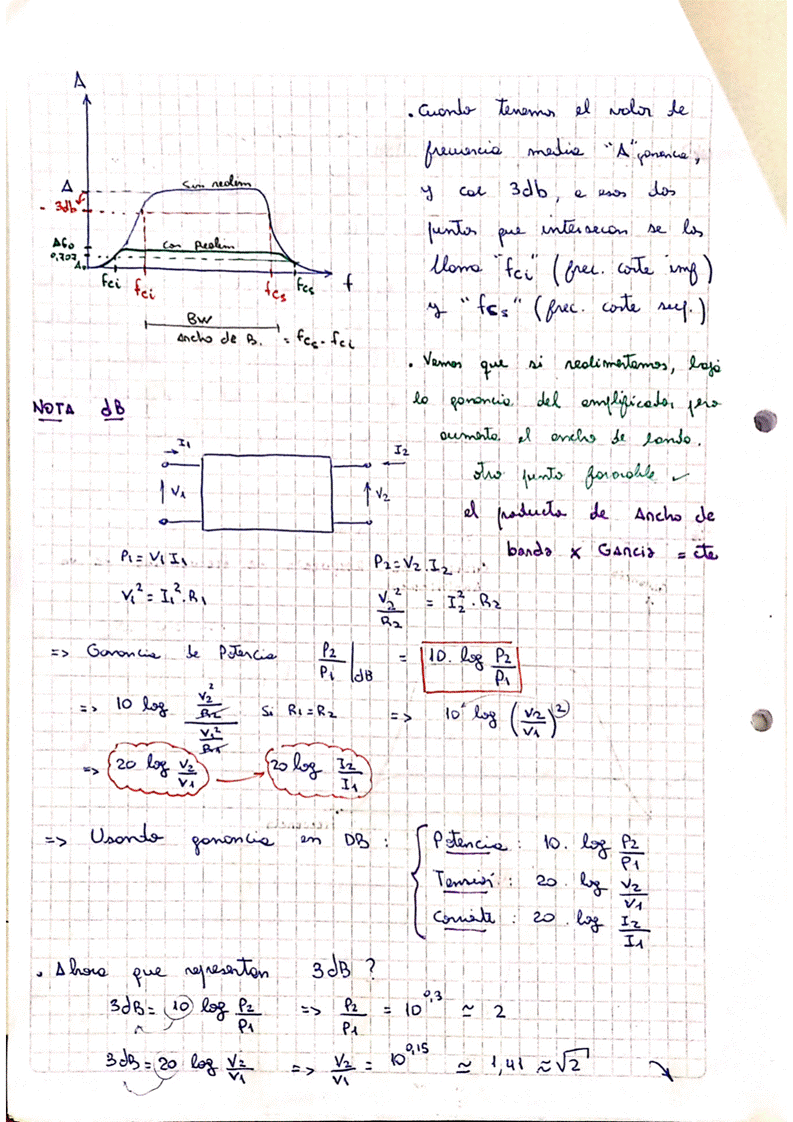 A
A
- 3db
AGo
0,707
Ao
sin realim
con realim
fci
fci
fcs
fcs
f
BW
Ancho de B. = fcs - fci
. Cuando tenemos el valor de
frecuencia media "A" ganancia,
y cae 3db, a esos dos
puntos que intersecan se los
llama "fci" (frec. corte inf)
y "fcs" (frec. corte sup.)
. Vemos que si realimentamos, baja
la ganancia del amplificador, pero
aumenta el ancho de banda.
otro punto favorable ✓
el producto de Ancho de
banda x Gancia = cte
NOTA dB
I1
I2
V1
V2
P1 = V1 I1
P2 = V2 . I2
V1² = I1² . R1
V2²/R2 = I2² . R2
=> Ganancia de Potencia P2/P1 |dB = 10. log P2/P1
=> 10 log (V2²/R2)/(V1²/R1) si R1 = R2 => 10 log (V2/V1)²
=> 20 log V2/V1 → 20 log I2/I1
=> Usando ganancia en DB :
Potencia : 10. log P2/P1
Tensión : 20. log V2/V1
Corriente : 20. log I2/I1
. Ahora que representan 3dB ?
3dB = 10 log P2/P1 => P2/P1 = 10^0,3 ≃ 2
3dB = 20 log V2/V1 => V2/V1 = 10^0,15 ≃ 1,41 ≃ √2